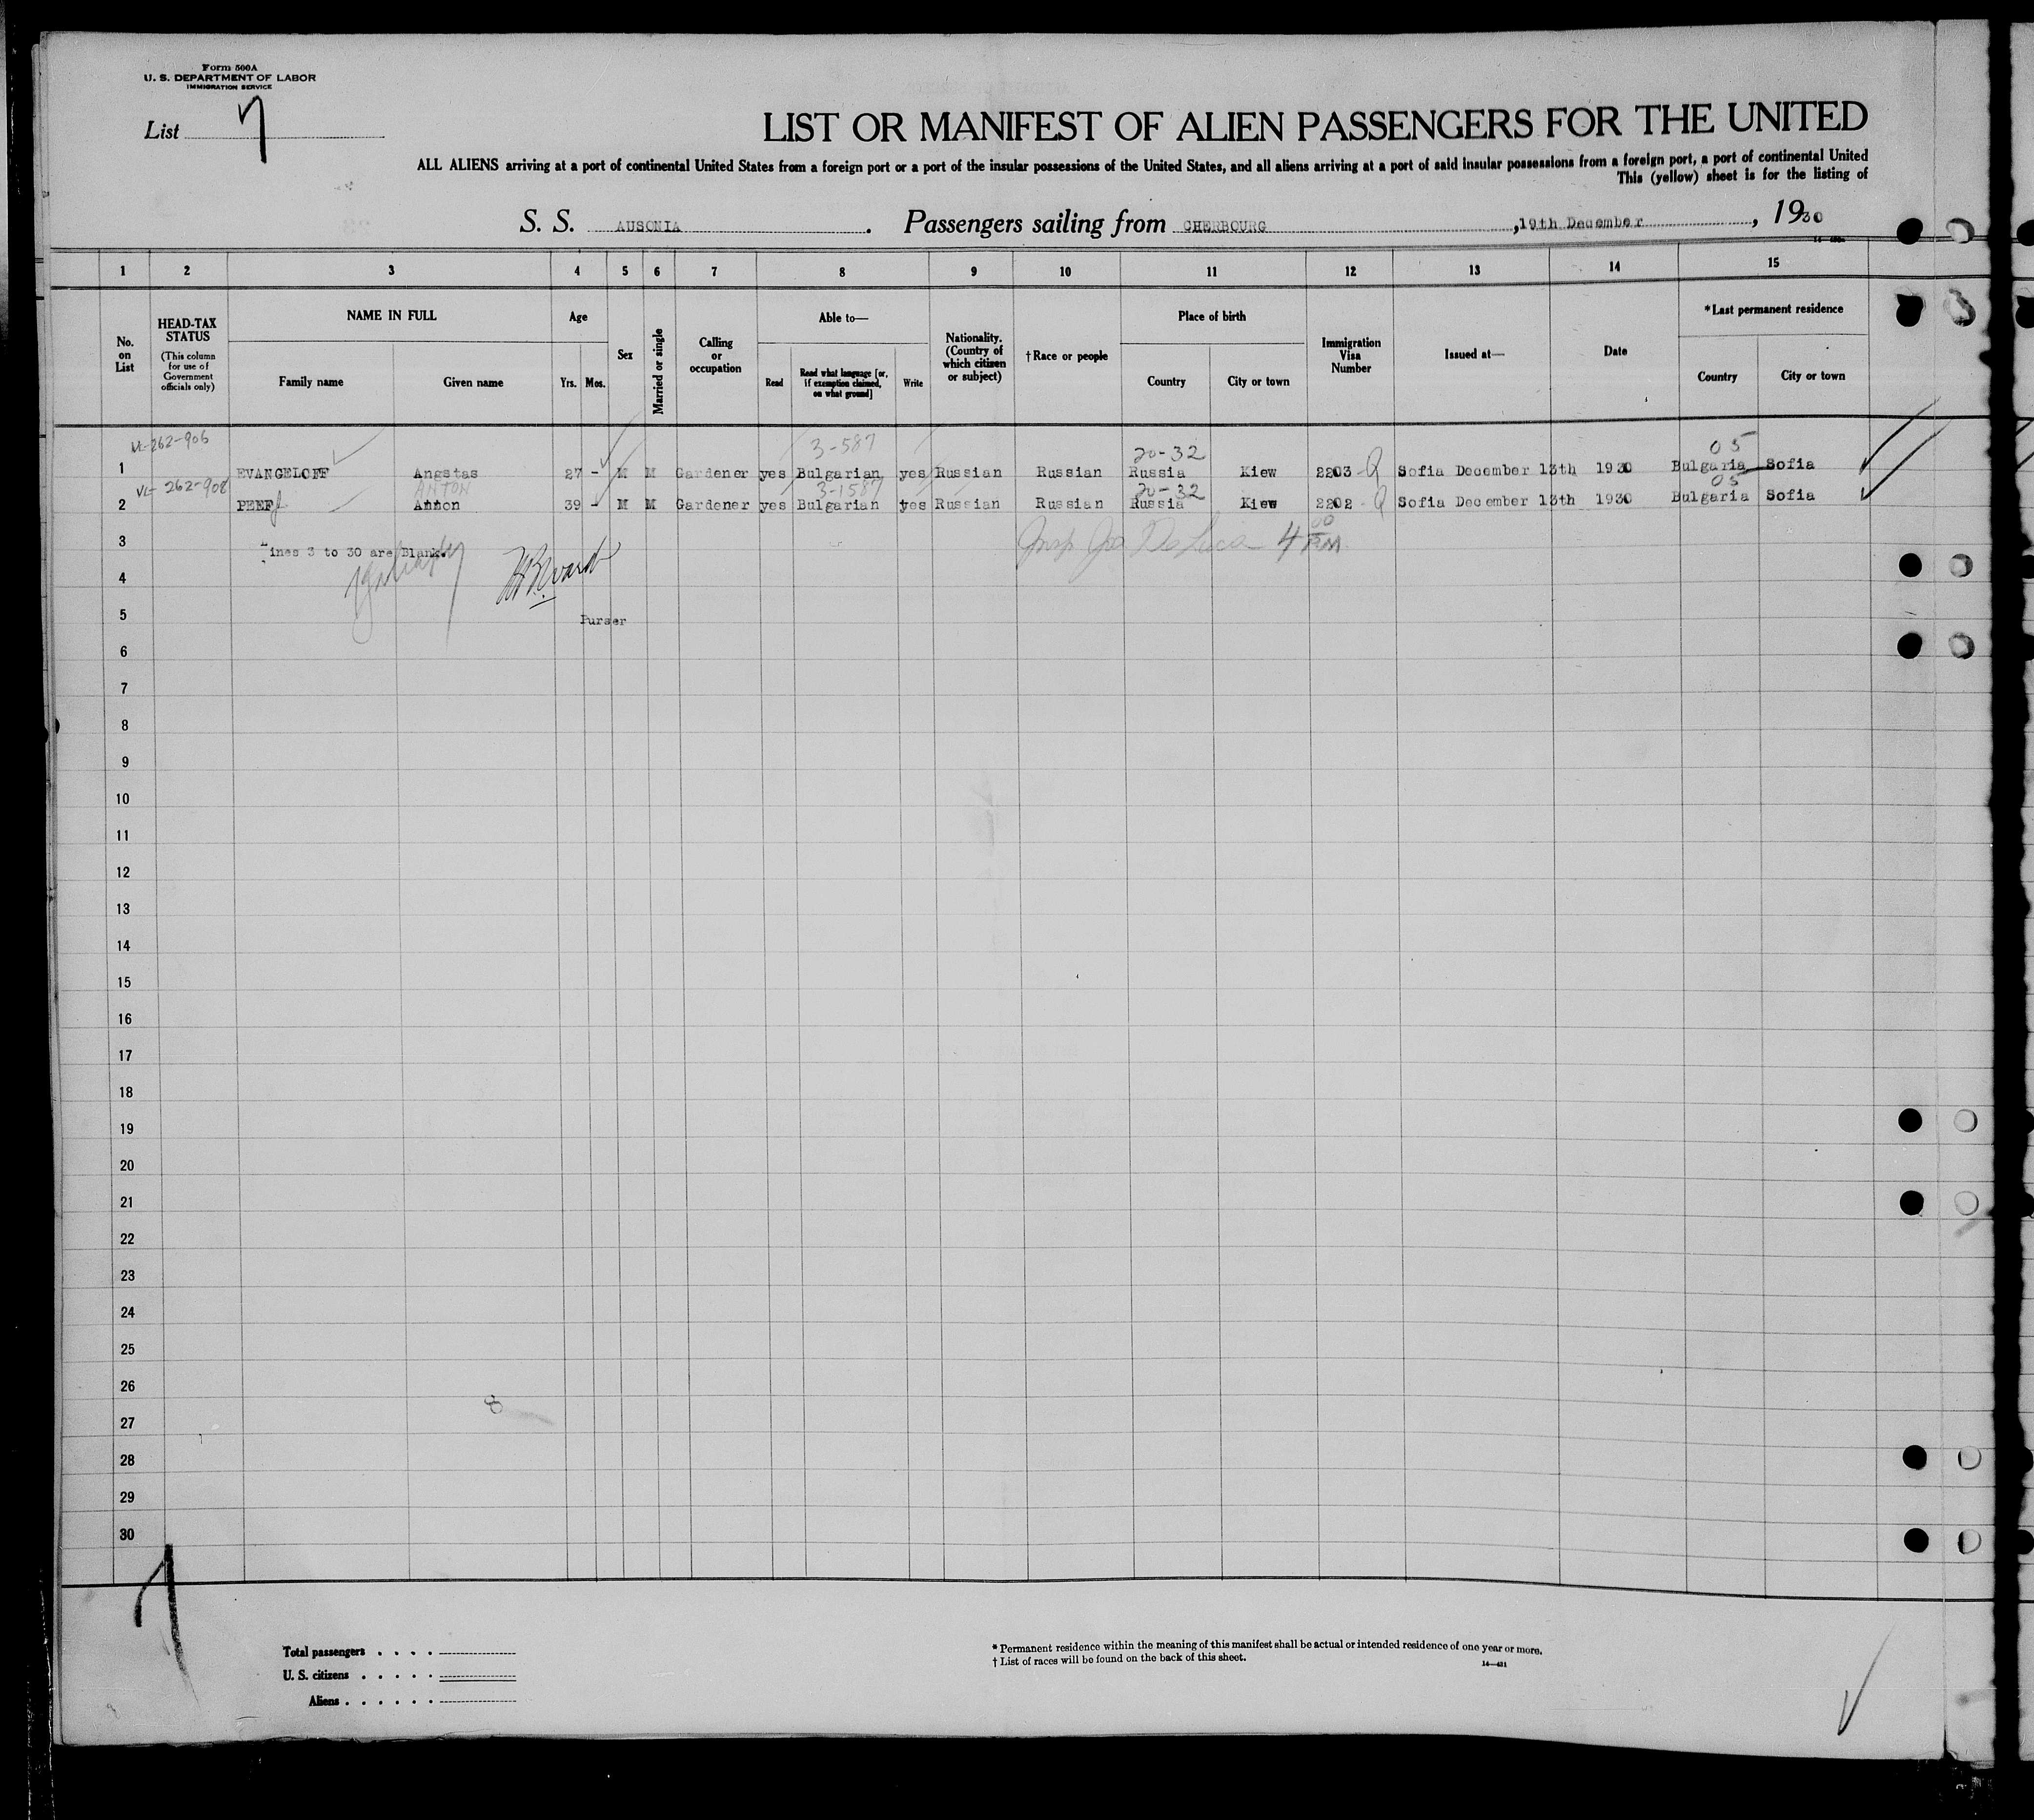 Form 500A
U. S. DEPARTMENT OF LABOR
IMMIGRATION SERVICE
List 7
LIST OR MANIFEST OF ALIEN PASSENGERS FOR THE UNITED
ALL ALIENS arriving at a port of continental United States from a foreign port or a port of the insular possessions of the United States, and all aliens arriving at a port of said insular possessions from a foreign port, a port of continental United
This (yellow) sheet is for the listing of
S. S. AUSONIA. Passengers sailing from CHERBOURG, 19th December, 1930
1 2 3 4 5 6 7 8 9 10 11 12 13 14 15
No. on List
HEAD-TAX STATUS (This column for use of Government officials only)
NAME IN FULL
Family name Given name
Age
Yrs. Mos.
Sex
Married or single
Calling or occupation
Able to—
Read Read what language [or, if exemption claimed, on what ground] Write
Nationality. (Country of which citizen or subject)
†Race or people
Place of birth
Country City or town
Immigration Visa Number
Issued at—
Date
*Last permanent residence
Country City or town
262-906 3-587 20-32 05
1 EVANGELOFF Angstas 27 - M M Gardener yes Bulgarian yes Russian Russian Russia Kiew 2203 Q Sofia December 13th 1930 Bulgaria Sofia
262-908 ANTON 3-1587 20-32 05
2 PEEF Annon 39 - M M Gardener yes Bulgarian yes Russian Russian Russia Kiew 2202 Q Sofia December 13th 1930 Bulgaria Sofia
3 Lines 3 to 30 are Blank. Insp De Luca 4 00 PM
4
5 Purser
6
7
8
9
10
11
12
13
14
15
16
17
18
19
20
21
22
23
24
25
26
8
27
28
29
30
Total passengers . . . .
U. S. citizens . . . . .
Aliens . . . . . .
* Permanent residence within the meaning of this manifest shall be actual or intended residence of one year or more.
† List of races will be found on the back of this sheet.